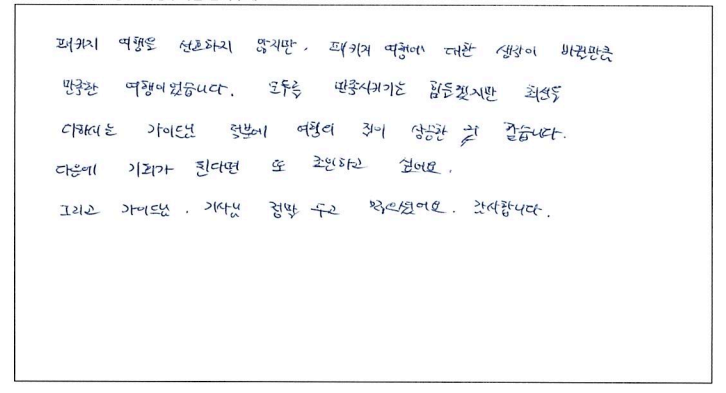 패키지 여행을 선호하지 않지만, 패키지 여행에 대한 생각이 바뀔만큼
만족한 여행이었습니다. 모두를 만족시키기는 힘들겠지만 최선을
다하시는 가이드님 덕분에 여행의 질이 상승한 것 같습니다.
다음에 기회가 된다면 또 조인하고 싶어요.
그리고 가이드님, 기사님 정말 두고 감사합니다.